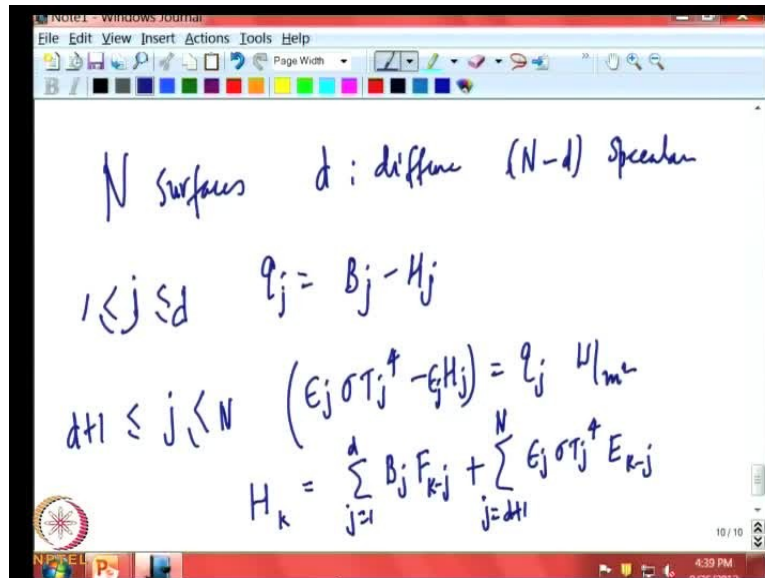 Note1 - Windows Journal
File Edit View Insert Actions Tools Help
Page Width
B I
N surfaces d : diffuse (N-d) Specular
1 ≤ j ≤ d q_j = B_j - H_j
d+1 ≤ j ≤ N (ϵ_j σT_j^4 - ϵ_j H_j) = q_j W/m^2
H_k = \sum_{j=1}^{d} B_j F_{k-j} + \sum_{j=d+1}^{N} ϵ_j σT_j^4 E_{k-j}
10 / 10
NPTEL
4:39 PM